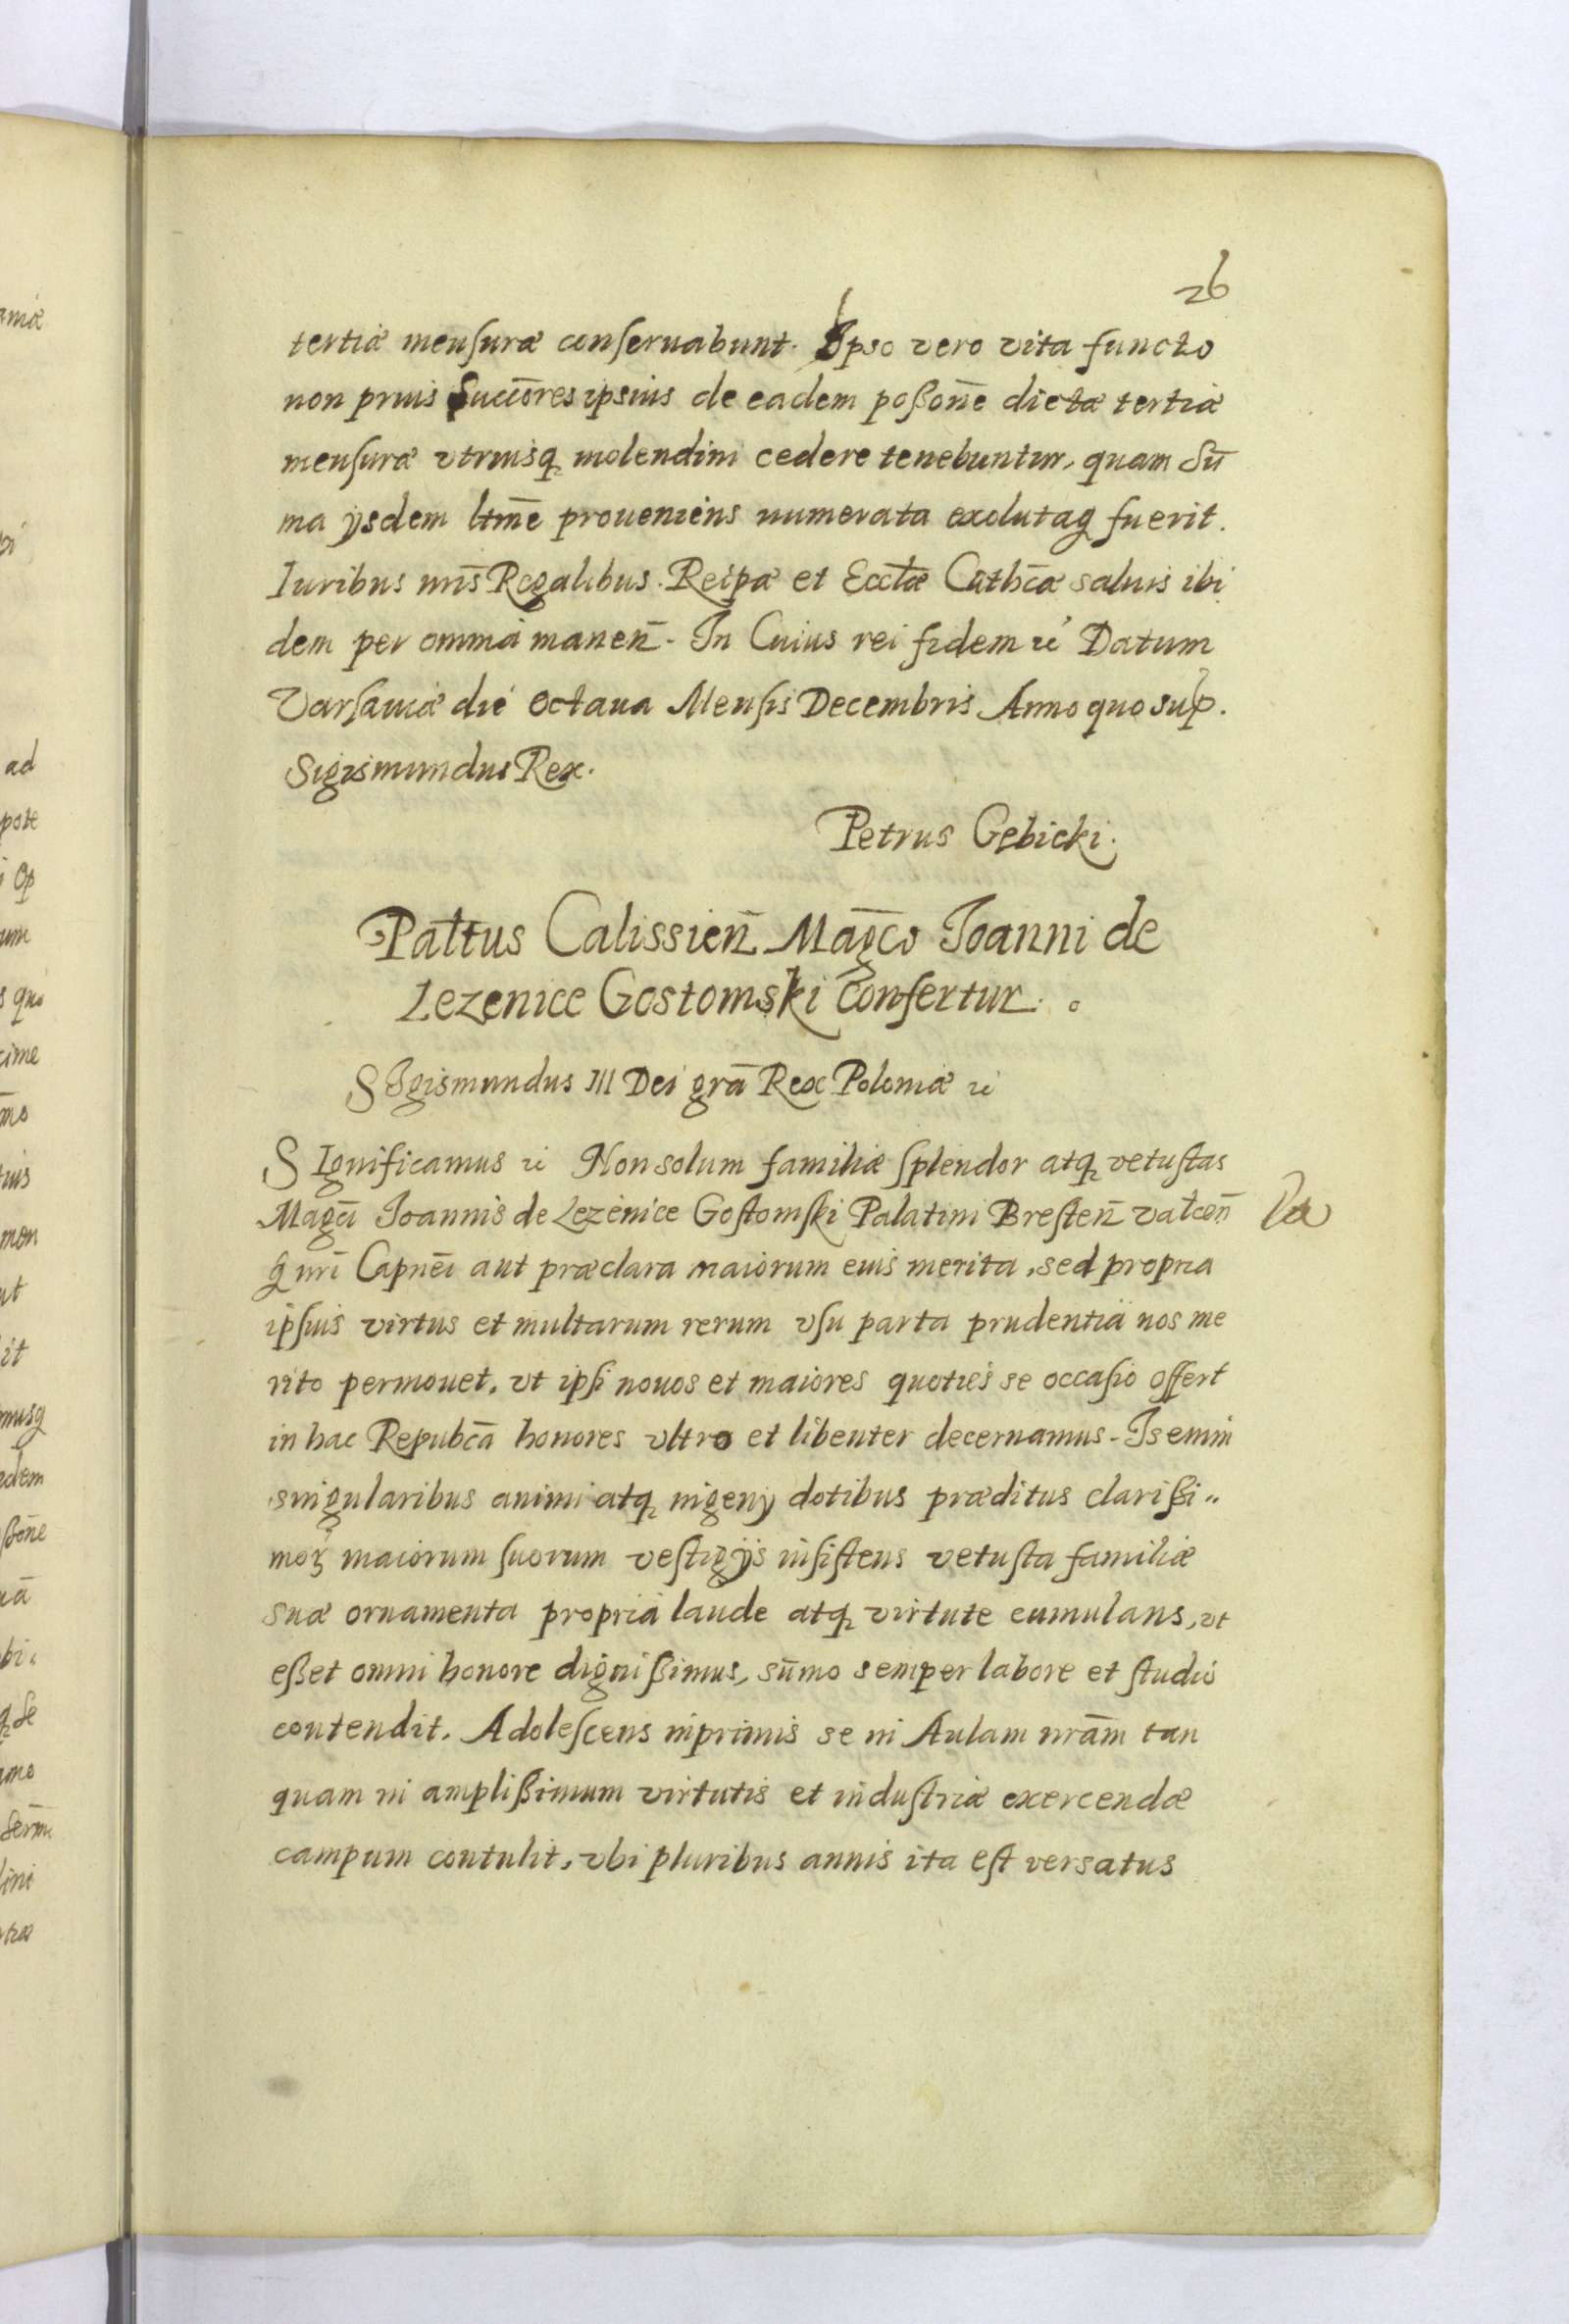 26
tertiæ mensuræ conseruabunt. Ipso vero vita functo
non prius Succōres ipsius de eadem poßone̅ dictæ tertiæ
mensuræ vtriusq̨ molendini cedere tenebuntur, quam Su̅
ma ijsdem ltm̅e proueniens numerata exolutaq̨ fuerit.
Iuribus nr̅is Regalibus. Reipæ et Eccl̅æ Cathc̅æ saluis ibi
dem per omnia manen̅. In Cuius rei fidem &c Datum
Varsauiæ die octaua Mensis Decembris Anno quo sup̱.
Sigismundus Rex.
Petrus Gębicki.
Pal̅tus Calissien̅ Mag̅co Joanni de
Lezenice Gostomski Confertur.
SIgismundus III Dei gra̅ Rex Poloniæ &c
SIgnificamus &c Non solum familiæ splendor atq̨ vetustas
Magc̅i Joannis de Lezenice Gostomski Palatini Bresten̅ Valcen̅
q̨ nr̅i Capne̅i aut præclara maiorum eius merita, sed propria
ipsius virtus et multarum rerum vsu parta prudentia nos me
rito permouet, vt ipsi nouos et maiores quoties se occasio offert
in hac Repubc̅a honores vltro et libenter decernamus. Is enim
singularibus animi atq̨ ingenij dotibus præditus clarißi„
moꝝ maiorum suorum vestigijs insistens vetusta familiæ
suæ ornamenta propria laude atq̨ virtute cumulans, vt
eßet omni honore dignißimus, su̅mo semper labore et studio
contendit. Adolescens inprimis se in Aulam nra̅m tan
quam in amplißimum virtutis et industriæ exercendæ
campum contulit, vbi pluribus annis ita est versatus